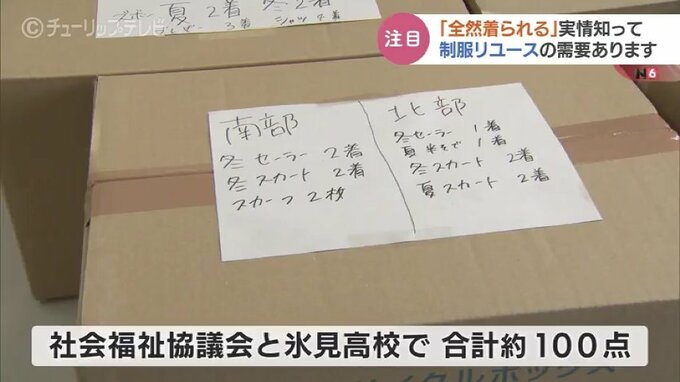 ©チューリップ・テレビ
注目
「全然着られる」実情知って
制服リユースの需要あります
N6
夏 2着 冬 2着
南部
冬セーラー 2着
冬スカート 2着
スカーフ 2枚
北部
冬セーラー 1着
夏半そで 1着
冬スカート 2着
夏スカート 2着
社会福祉協議会と氷見高校で 合計約100点